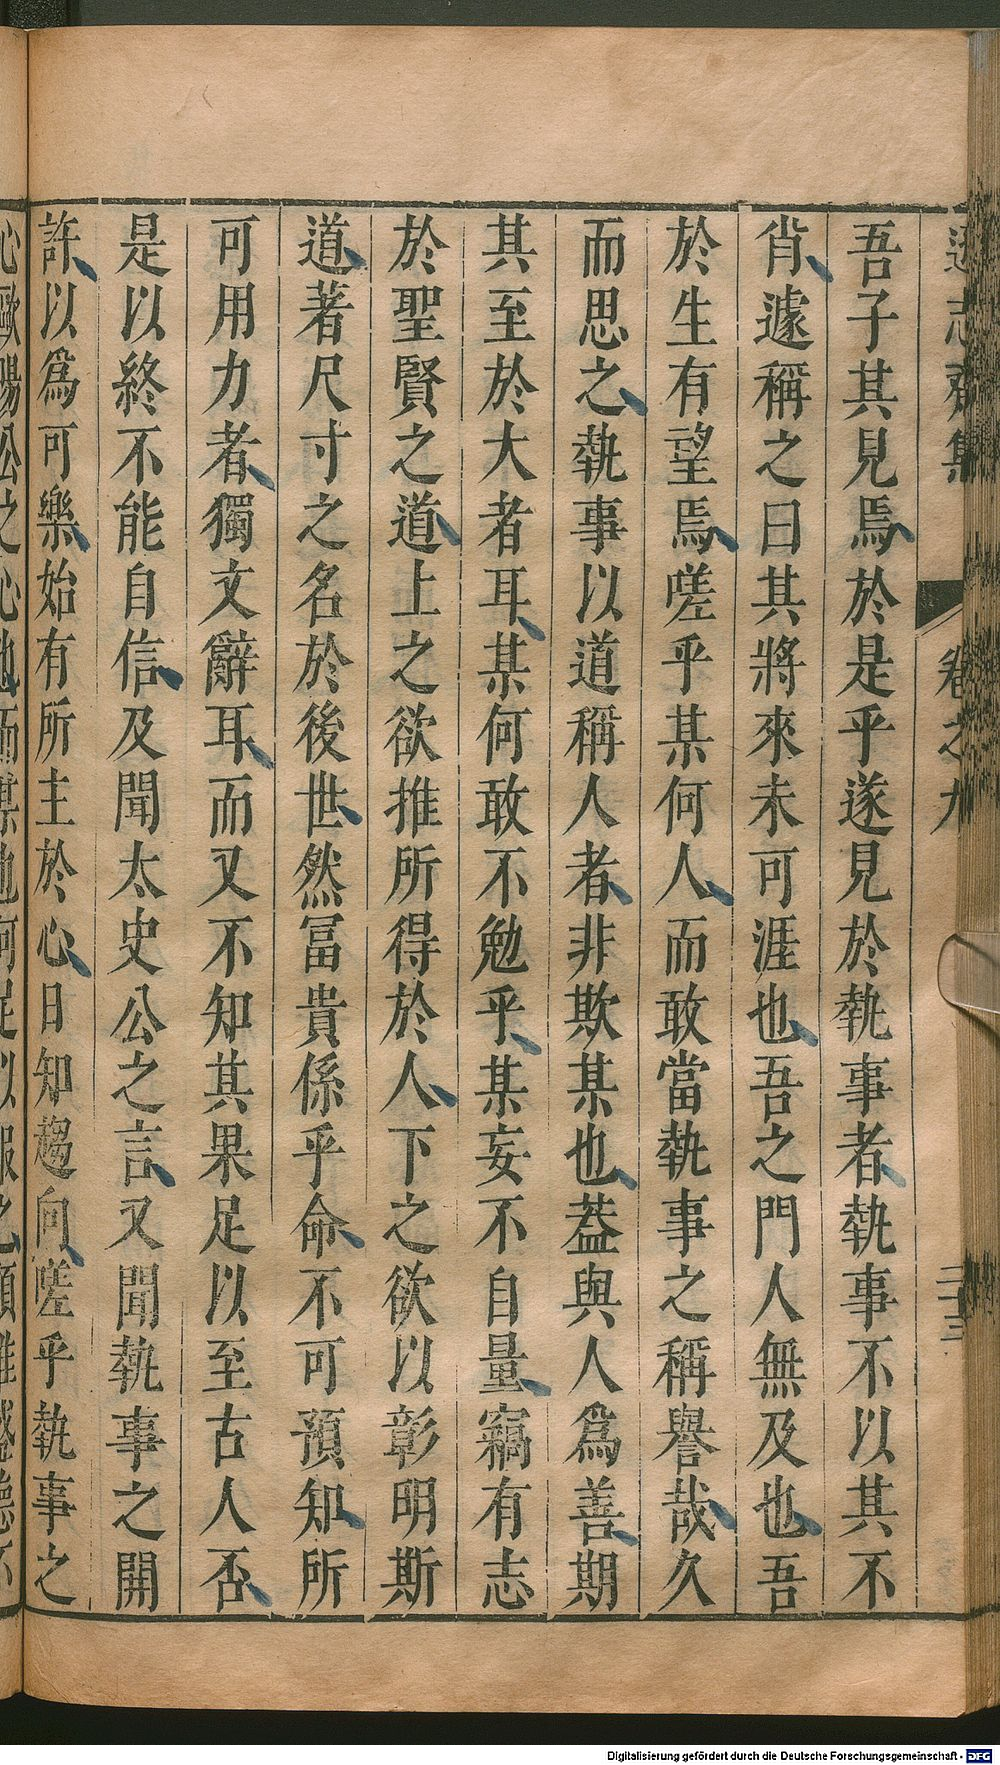 遜志齋集 卷之九 二十三
吾子其見焉於是乎遂見於執事者執事不以其不
肖遽稱之曰其將來未可涯也吾之門人無及也吾
於生有望焉嗟乎某何人而敢當執事之稱譽哉久
而思之執事以道稱人者非欺某也葢與人爲善期
其至於大者耳某何敢不勉乎某妄不自量竊有志
於聖賢之道上之欲推所得於人下之欲以彰明斯
道著尺寸之名於後世然冨貴係乎命不可預知所
可用力者獨文辭耳而又不知其果足以至古人否
是以終不能自信及聞太史公之言又聞執事之開
許以爲可樂始有所主於心日知趨向嗟乎執事之
心歐陽公之心也而某也何足以報之顧雖
Digitalisierung gefördert durch die Deutsche Forschungsgemeinschaft - DFG